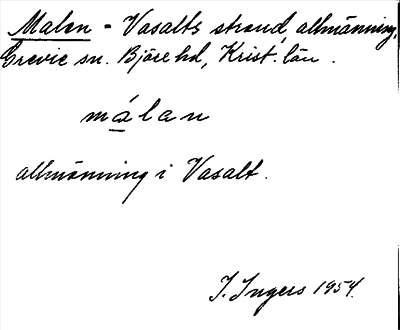 Malen - Vasalts strand, allmänning,
Grevie sn. Bjäre hd, Krist. län.
málan
allmänning i Vasalt.
I. Ingers 1954.